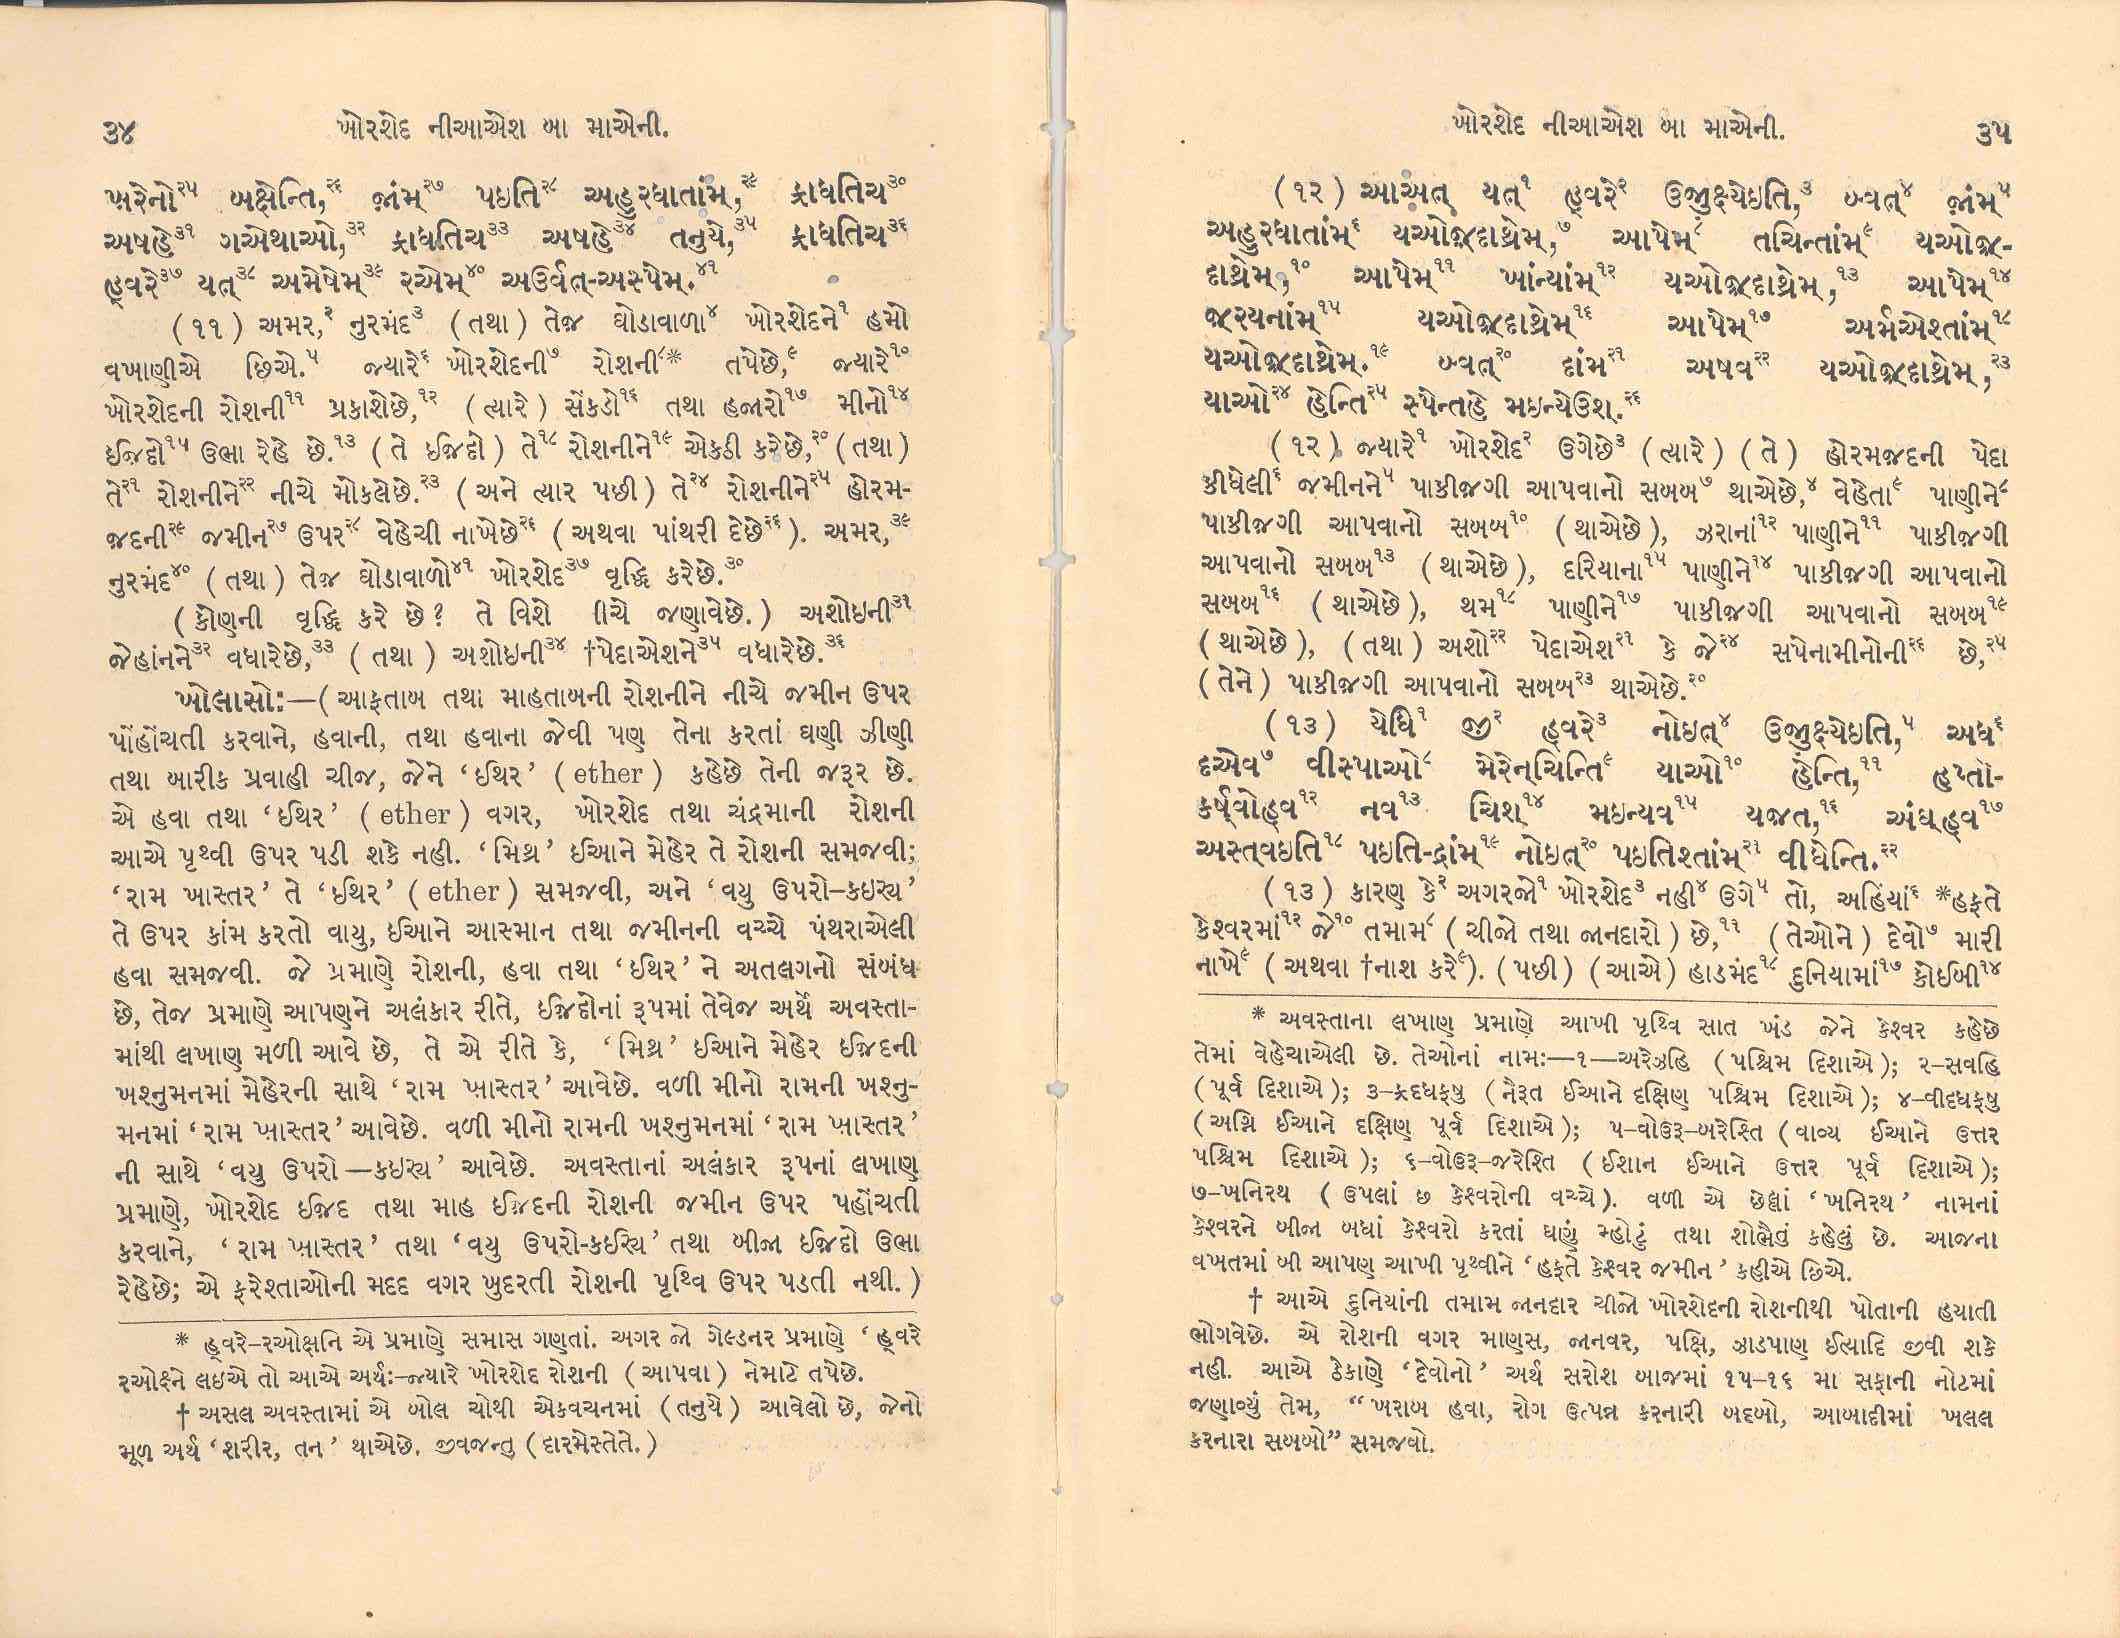 ૩૪ ખોરશેદ નીઆએશ બા માએની.
ખ઼રેનો૨૫ બક્ષેન્તિ,૨૬ જ઼ાંમ્૨૭ પઇતિ૨૮ અહુરધાતાંમ્,૨૯ ફ્રાધતિચ૩૦
અષહે૩૧ ગએથાઓ,૩૨ ફ્રાધતિચ૩૩ અષહે૩૪ તનુયે,૩૫ ફ્રાધતિચ૩૬
હ્વરે૩૭ યત્૩૮ અમેષેમ્૩૯ રએમ્૪૦ અઉર્વત્-અસ્પેમ્.૪૧
(૧૧) અમર,૨ નુરમંદ૩ (તથા) તેજ઼ ઘોડાવાળા૪ ખોરશેદને૧ હમો
વખાણીએ છિએ.૫ જ્યારે૬ ખોરશેદની૭ રોશની૮* તપેછે,૯ જ્યારે૧૦
ખોરશેદની રોશની૧૧ પ્રકાશેછે,૧૨ (ત્યારે) સેંકડો૧૬ તથા હજારો૧૭ મીનો૧૪
ઈજ઼દો૧૫ ઉભા રેહે છે.૧૩ (તે ઇજ઼દો) તે૧૮ રોશનીને૧૯ એકઠી કરેછે,૨૦ (તથા)
તે૨૧ રોશનીને૨૨ નીચે મોકલેછે.૨૩ (અને ત્યાર પછી) તે૨૪ રોશનીને૨૫ હોરમ-
જ઼દની૨૯ જમીન૨૭ ઉપર૨૮ વેહેચી નાખેછે૨૬ (અથવા પાંથરી દેછે૨૬). અમર,૩૯
નુરમંદ૪૦ (તથા) તેજ઼ ઘોડાવાળો૪૧ ખોરશેદ૩૭ વૃદ્ધિ કરેછે.૩૦
(કોણની વૃદ્ધિ કરે છે? તે વિશે ીચે જણાવેછે.) અશોઇની૩૧
જેહાંનને૩૨ વધારેછે,૩૩ (તથા) અશોઇની૩૪ †પેદાએશને૩૫ વધારેછે.૩૬
ખોલાસો:—(આફતાબ તથા માહતાબની રોશનીને નીચે જમીન ઉપર
પોંહોંચતી કરવાને, હવાની, તથા હવાના જેવી પણ તેના કરતાં ઘણી ઝીણી
તથા બારીક પ્રવાહી ચીજ, જેને ‘ઇથિર’ (ether) કહેછે તેની જરૂર છે.
એ હવા તથા ‘ઇથિર’ (ether) વગર, ખોરશેદ તથા ચંદ્રમાની રોશની
આએ પૃથ્વી ઉપર પડી શકે નહી. ‘મિથ્ર’ ઈઆને મેહેર તે રોશની સમજવી;
‘રામ ખાસ્તર’ તે ‘ઇથિર’ (ether) સમજવી, અને ‘વયુ ઉપરો-કઇર્ય’
તે ઉપર કાંમ કરતો વાયુ, ઈઆને આસ્માન તથા જમીનની વચ્ચે પંથરાએલી
હવા સમજવી. જે પ્રમાણે રોશની, હવા તથા ‘ઇથિર’ ને અતલગનો સંબંધ
છે, તેજ પ્રમાણે આપણને અલંકાર રીતે, ઇજ઼દોનાં રૂપમાં તેવેજ અર્થે અવસ્તા-
માંથી લખાણ મળી આવે છે, તે એ રીતે કે, ‘મિથ્ર’ ઈઆને મેહેર ઇજ઼દની
ખશ્નુમનમાં મેહેરની સાથે ‘રામ ખ઼ાસ્તર’ આવેછે. વળી મીનો રામની ખશ્નુ-
મનમાં ‘રામ ખ઼ાસ્તર’ આવેછે. વળી મીનો રામની ખશ્નુમનમાં ‘રામ ખ઼ાસ્તર’
ની સાથે ‘વયુ ઉપરો—કઇર્ય’ આવેછે. અવસ્તાનાં અલંકાર રૂપનાં લખાણ
પ્રમાણે, ખોરશેદ ઇજ઼દ તથા માહ ઇજ઼દની રોશની જમીન ઉપર પહોંચતી
કરવાને, ‘રામ ખ઼ાસ્તર’ તથા ‘વયુ ઉપરો-કઇર્ય’ તથા બીજા ઇજ઼દો ઉભા
રેહેછે; એ ફરેશ્તાઓની મદદ વગર ખુદરતી રોશની પૃથ્વિ ઉપર પડતી નથી.)
* હ્વરે-રઓક્ષનિ એ પ્રમાણે સમાસ ગણતાં. અગર જો ગેલ્ડનર પ્રમાણે ‘હ્વરે
રઓક્ષ્ને લઇએ તો આએ અર્થ:-જ્યારે ખોરશેદ રોશની (આપવા) નેમાટે તપેછે.
† અસલ અવસ્તામાં એ બોલ ચોથી એકવચનમાં (તનુયે) આવેલો છે, જેનો
મૂળ અર્થ ‘શરીર, તન’ થાએછે. જીવજન્તુ (દારમેસ્તેતે.)
ખોરશેદ નીઆએશ બા માએની. ૩૫
(૧૨) આઅત્ યત્૧ હ્વરે૨ ઉજ઼ુક્ષ્યેઇતિ,૩ બ્વત્૪ જ઼ાંમ્૫
અહુરધાતાંમ્૬ યઓજ઼્દાથ્રેમ્,૭ આપેમ્૮ તચિન્તાંમ્૯ યઓજ઼્-
દાથ્રેમ્,૧૦ આપેમ્૧૧ ખાંન્યાંમ્૧૨ યઓજ઼્દાથ્રેમ્,૧૩ આપેમ્૧૪
જ઼રયનાંમ્૧૫ યઓજ઼્દાથ્રેમ્૧૬ આપેમ્૧૭ અર્મએશ્તાંમ્૧૮
યઓજ઼્દાથ્રેમ્.૧૯ બ્વત્૨૦ દાંમ૨૧ અષવ૨૨ યઓજ઼્દાથ્રેમ્,૨૩
યાઓ૨૪ હેન્તિ૨૫ સ્પેન્તહે મઇન્યેઉશ્.૨૬
(૧૨) જ્યારે૧ ખોરશેદ૨ ઉગેછે૩ (ત્યારે) (તે) હોરમજ઼દની પેદા
કીધેલી૬ જમીનને૫ પાકીજ઼ગી આપવાનો સબબ૭ થાએછે,૪ વેહેતા૯ પાણીને૮
પાકીજ઼ગી આપવાનો સબબ૧૦ (થાએછે), ઝરાનાં૧૨ પાણીને૧૧ પાકીજ઼ગી
આપવાનો સબબ૧૩ (થાએછે), દરિયાના૧૫ પાણીને૧૪ પાકીજ઼ગી આપવાનો
સબબ૧૬ (થાએછે), થમ૧૮ પાણીને૧૭ પાકીજ઼ગી આપવાનો સબબ૧૯
(થાએછે), (તથા) અશો૨૨ પેદાએશ૨૧ કે જે૨૪ સપેનામીનોની૨૬ છે,૨૫
(તેને) પાકીજ઼ગી આપવાનો સબબ૨૩ થાએછે.૨૦
(૧૩) યેધિ૧ જી૨ હ્વરે૩ નોઇત્૪ ઉજ઼ુક્ષ્યેઇતિ,૫ અધ૬
દએવ૭ વીસ્પાઓ૮ મેરેન્ચિન્તિ૯ યાઓ૧૦ હેન્તિ,૧૧ હપ્તો-
કર્ષ્વોહ્વ૧૨ નવ૧૩ ચિશ્૧૪ મઇન્યવ૧૫ યજ઼ત,૧૬ અંઘ્હ્વ૧૭
અસ્ત્વઇતિ૧૮ પઇતિ-દ્રાંમ્૧૯ નોઇત્૨૦ પઇતિશ્તાંમ્૨૧ વીધેન્તિ.૨૨
(૧૩) કારણ કે૨ અગરજો૧ ખોરશેદ૩ નહી૪ ઉગે૫ તો, અહિંયાં૬ *હફતે
કેશ્વરમાં૧૨ જે૧૦ તમામ૮ (ચીજો તથા જાનદારો) છે,૧૧ (તેઓને) દેવો૭ મારી
નાખે૯ (અથવા †નાશ કરે૯). (પછી) (આએ) હાડમંદ૧૮ દુનિયામાં૧૭ કોઇબી૧૪
* અવસ્તાના લખાણ પ્રમાણે આખી પૃથ્વિ સાત ખંડ જેને કેશ્વર કહેછે
તેમાં વેહેચાએલી છે. તેઓનાં નામ:—૧—અરેઝહિ (પશ્ચિમ દિશાએ); ૨-સવહિ
(પૂર્વ દિશાએ); ૩-ફ્રદધફષુ (નૈરૂત ઈઆને દક્ષિણ પશ્ચિમ દિશાએ); ૪-વીદધફષુ
(અગ્નિ ઈઆને દક્ષિણ પૂર્વ દિશાએ); ૫-વોઉરૂ-બરેશ્તિ (વાવ્ય ઈઆને ઉત્તર
પશ્ચિમ દિશાએ); ૬-વોઉરૂ-જરેશ્તિ (ઈશાન ઈઆને ઉત્તર પૂર્વ દિશાએ);
૭-ખનિરથ (ઉપલાં છ કેશ્વરોની વચ્ચે). વળી એ છેલ્લાં ‘ખનિરથ’ નામનાં
કેશ્વરને બીજા બધાં કેશ્વરો કરતાં ઘણું મ્હોટું તથા શોભૈતું કહેલું છે. આજના
વખતમાં બી આપણ આખી પૃથ્વીને ‘હફતે કેશ્વર જમીન’ કહીએ છિએ.
† આએ દુનિયાંની તમામ જાનદાર ચીજો ખોરશેદની રોશનીથી પોતાની હયાતી
ભોગવેછે. એ રોશની વગર માણસ, જાનવર, પક્ષિ, ઝાડપાણ ઈત્યાદિ જીવી શકે
નહી. આએ ઠેકાણે ‘દેવોનો’ અર્થ સરોશ બાજમાં ૧૫-૧૬ મા સફાની નોટમાં
જણાવ્યું તેમ, “ખરાબ હવા, રોગ ઉત્પન્ન કરનારી બદબો, આબાદીમાં ખલલ
કરનારા સબબો” સમજવો.